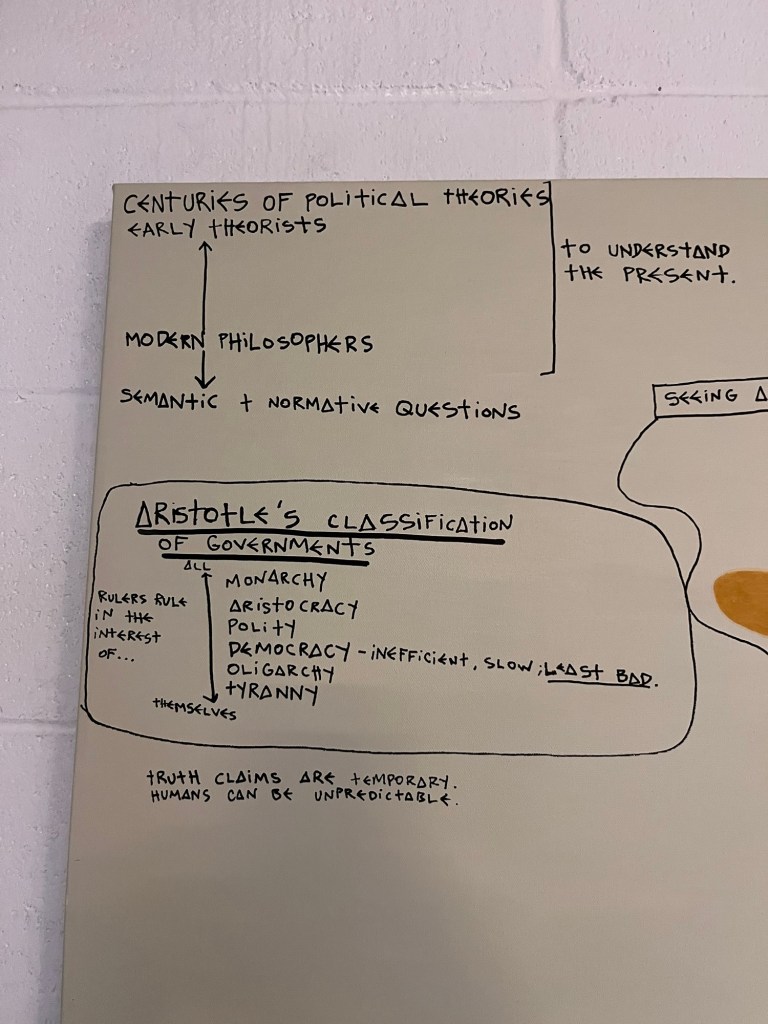 CENTURIES OF POLITICAL THEORIES
EARLY THEORISTS
TO UNDERSTAND
THE PRESENT.
MODERN PHILOSOPHERS
SEMANTIC + NORMATIVE QUESTIONS
SEEING
ARISTOTLE'S CLASSIFICATION
OF GOVERNMENTS
ALL
RULERS RULE
IN THE
INTEREST
OF...
THEMSELVES
MONARCHY
ARISTOCRACY
POLITY
DEMOCRACY - INEFFICIENT, SLOW; LEAST BAD.
OLIGARCHY
TYRANNY
TRUTH CLAIMS ARE TEMPORARY.
HUMANS CAN BE UNPREDICTABLE.